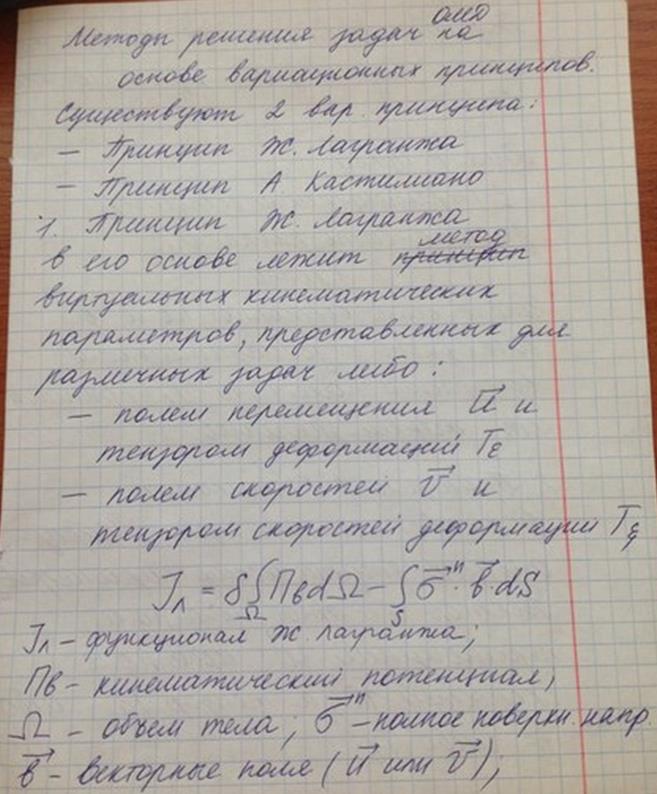 Методы решения задач ОМД на
основе вариационных принципов.
Существуют 2 вар. принципа:
– Принцип Ж. Лагранжа
– Принцип А. Кастилиано
1. Принцип Ж. Лагранжа
в его основе лежит принцип метод
виртуальных кинематических
параметров, представленных для
различных задач либо:
– полем перемещения U⃗ и
тензором деформаций Tε
– полем скоростей V⃗ и
тензором скоростей деформаций Tξ
Jл = δ∫Ω Пв dΩ – ∫S σ⃗ⁿ · b⃗ · dS
Jл – функционал Ж Лагранжа;
Пв – кинематический потенциал,
Ω – объем тела; σ⃗ⁿ – полное поверхн. напр.
b⃗ – векторные поля (U⃗ или V⃗);